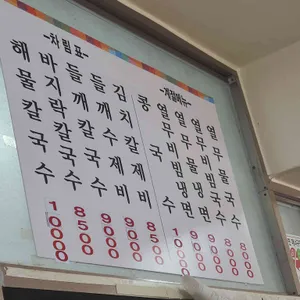 -차림표-
해물칼국수 10000
바지락칼국수 8500
들깨칼국수 9000
들깨수제비 9000
김치수제비 8500
-계절메뉴-
콩국수
열무비빔냉면
열무물냉면
열무비빔국수
열무물국수